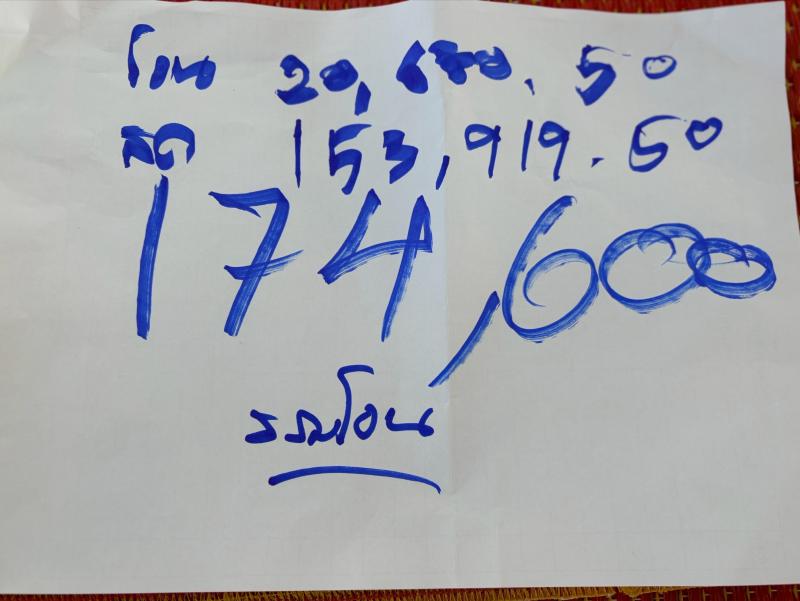 โอน 20,680.50
สด 153,919.50
174,600
รวมโอน